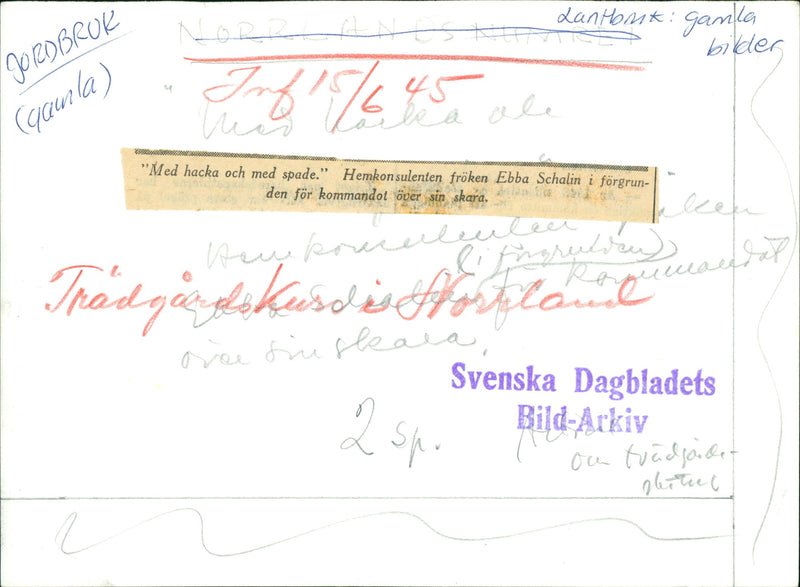 JORDBRUK
(gamla)
NORRLANDSNUMRET
Lantbruk: gamla
bilder
Inf 15/6 45
"Med hacka och
"Med hacka och med spade." Hemkonsulenten fröken Ebba Schalin i förgrun-
den för kommandot över sin skara.
Hemkonsulenten fröken
(i förgrunden)
Ebba Schalin för kommandot
Trädgårdskurs i Norrland
över sin skara.
Svenska Dagbladets
Bild-Arkiv
2 sp.
om trädgårds-